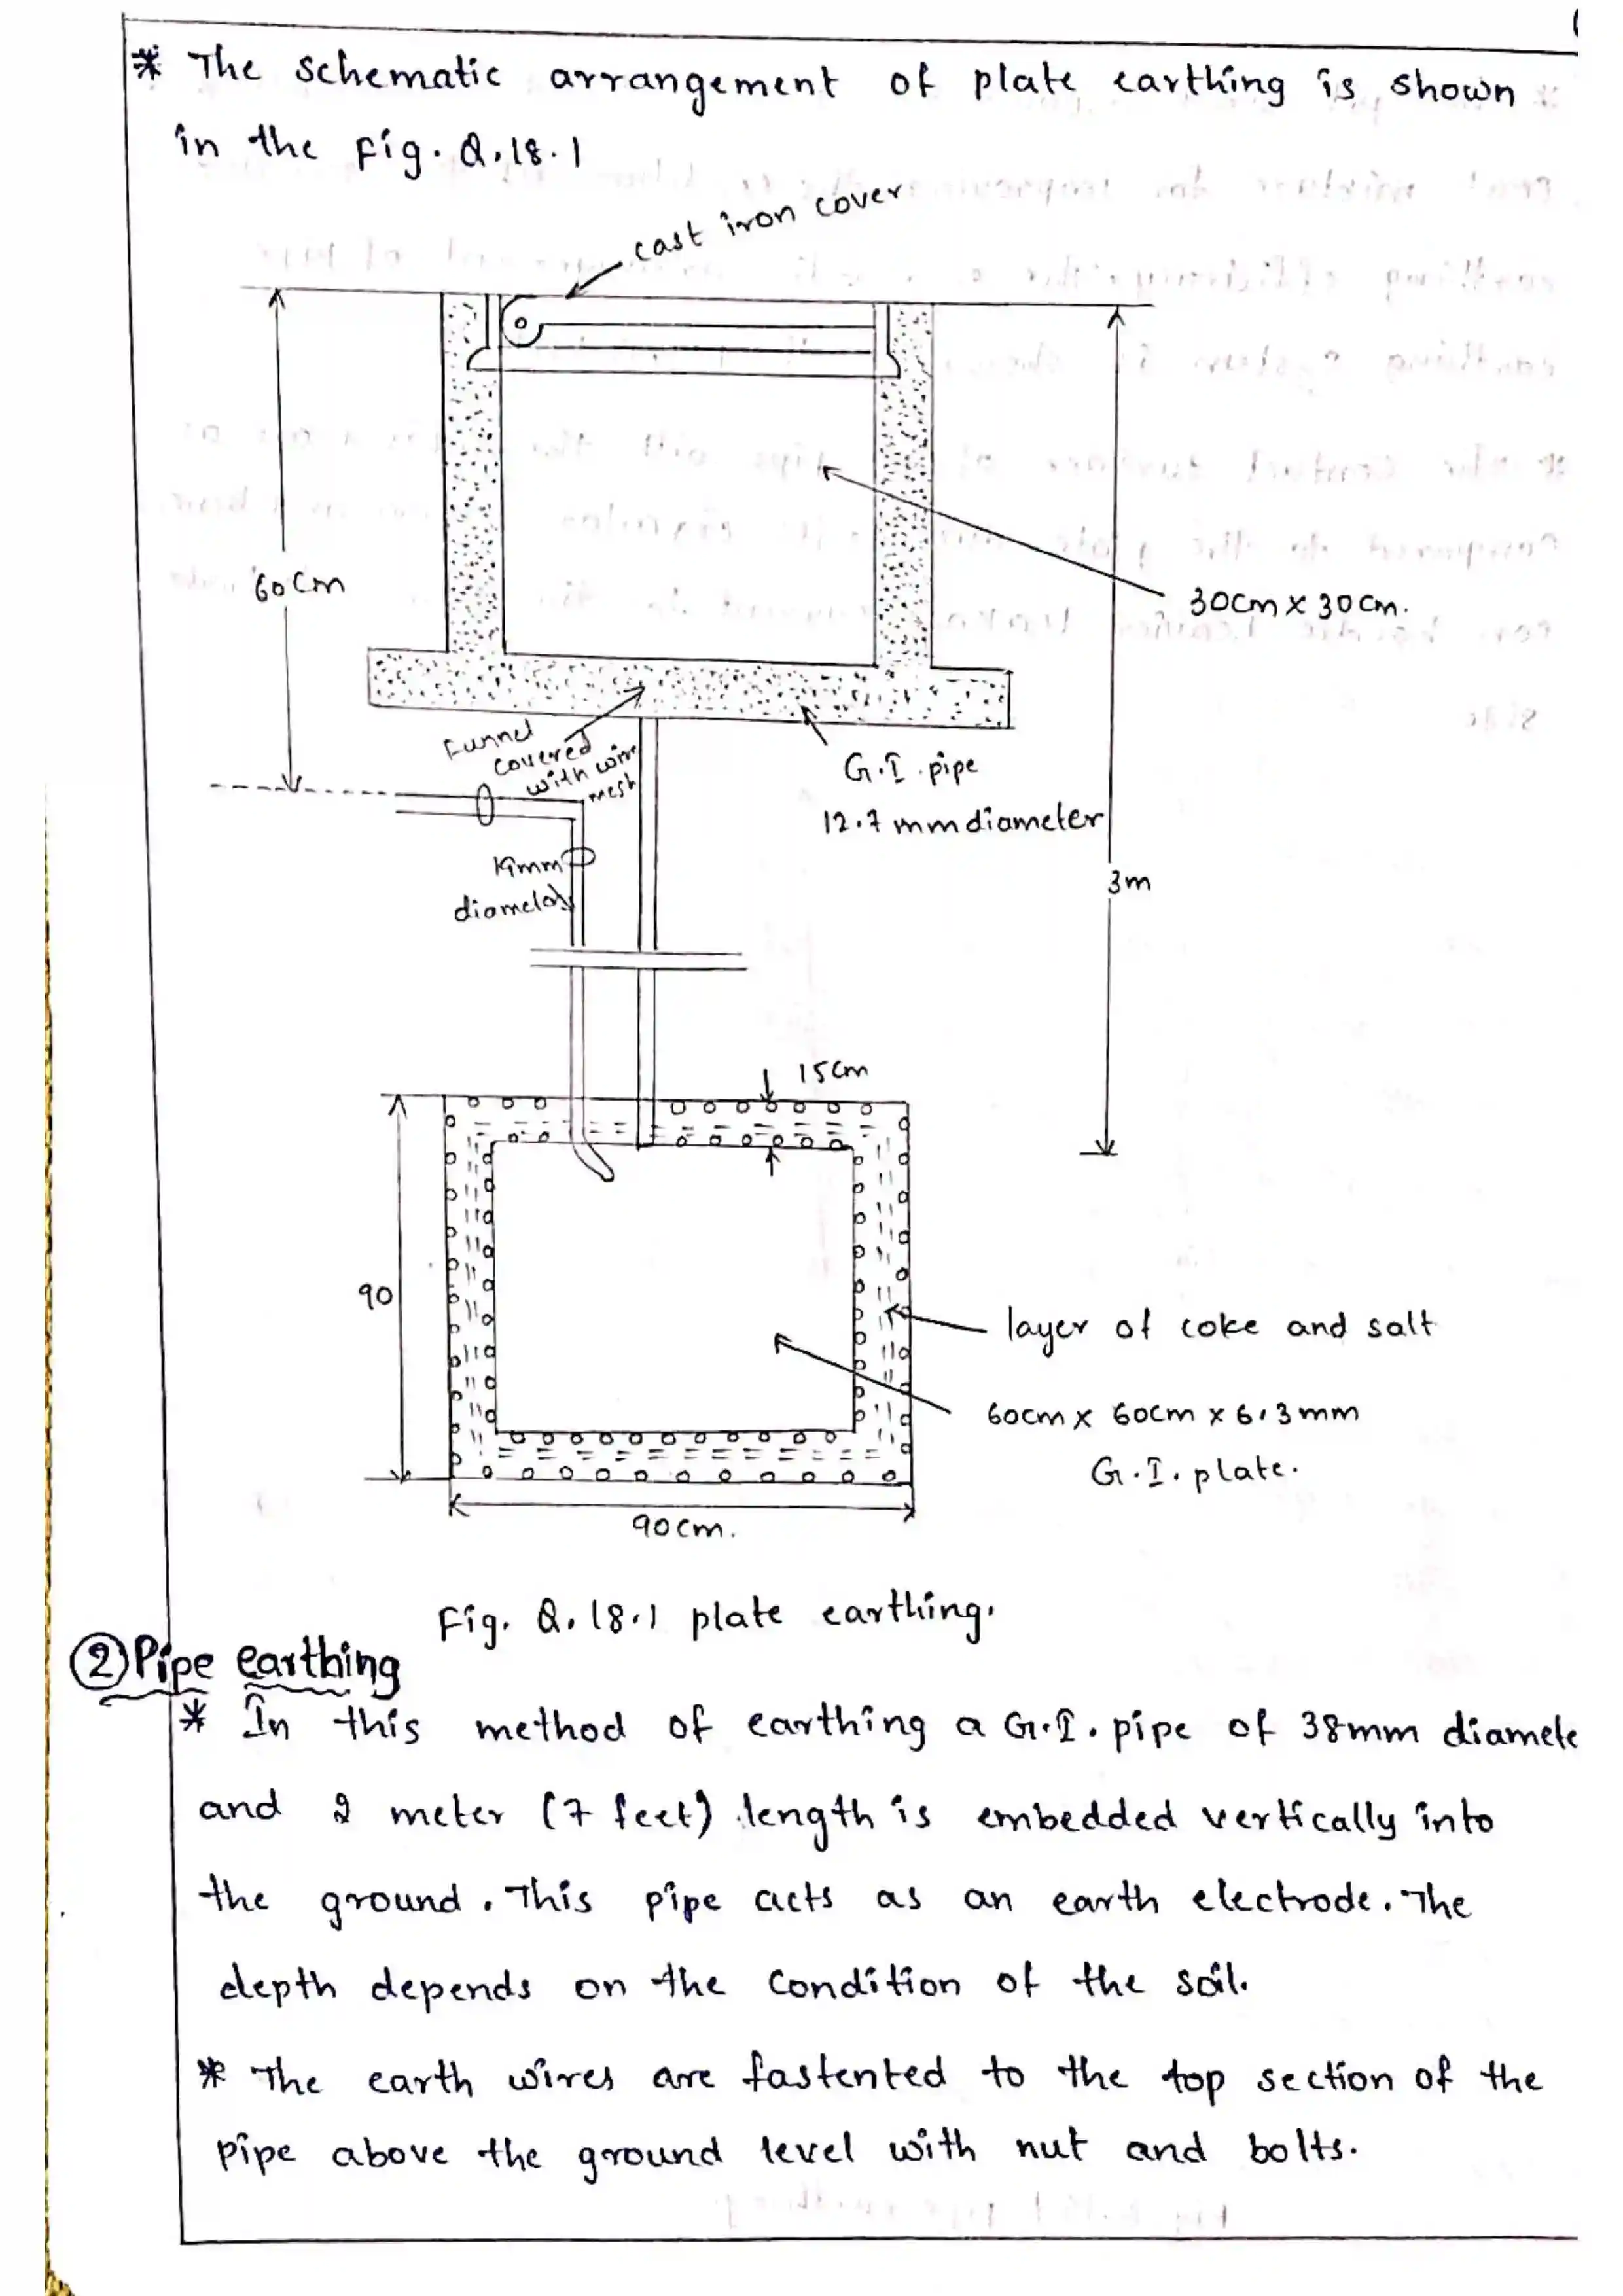 * The schematic arrangement of plate earthing is shown
in the Fig. Q.18.1
cast iron cover
60cm
30cm x 30cm.
Funnel
covered
with wire
mesh
G.I. pipe
12.7 mm diameter
19mm
3m
15cm
90
layer of coke and salt
60cm x 60cm x 6.3mm
G.I. plate.
90cm.
Fig. Q.18.1 plate earthing.
② Pipe earthing
* In this method of earthing a G.I. pipe of 38mm diamete
and 2 meter (7 feet) length is embedded vertically into
the ground. This pipe acts as an earth electrode. The
depth depends on the condition of the soil.
* The earth wires are fastented to the top section of the
pipe above the ground level with nut and bolts.